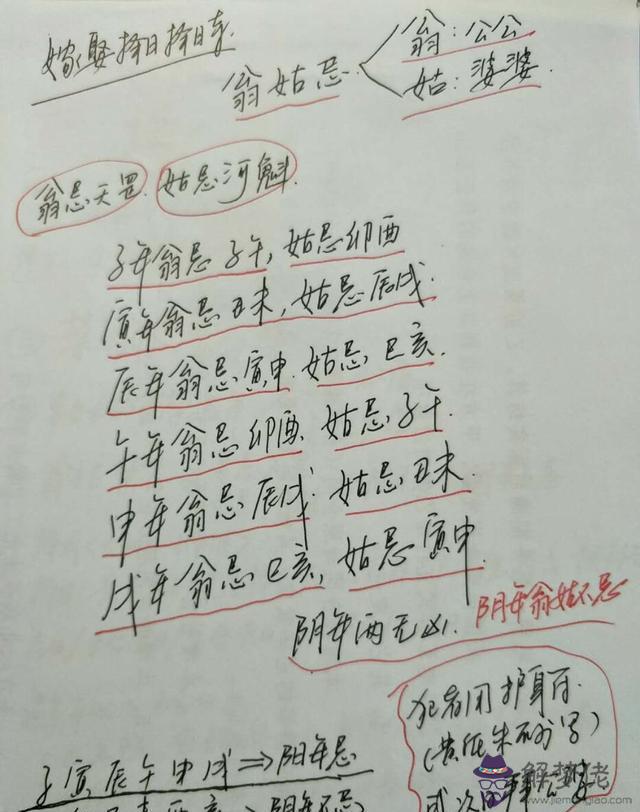 嫁娶择日择日车
翁姑忌
翁：公公
姑：婆婆
翁忌天罡. 姑忌河魁.
子年翁忌子午，姑忌卯酉
寅年翁忌丑未，姑忌辰戌.
辰年翁忌寅申. 姑忌巳亥.
午年翁忌卯酉 姑忌子午.
申年翁忌辰戌. 姑忌丑未
戌年翁忌巳亥，姑忌寅申.
阴年两无凶. 阴年翁姑不忌
犯者用护身符
(黄纸朱砂写)
子寅辰午申戌⇒阳年忌
⇒阴年不忌
解梦佬
www.jiemenglao.com